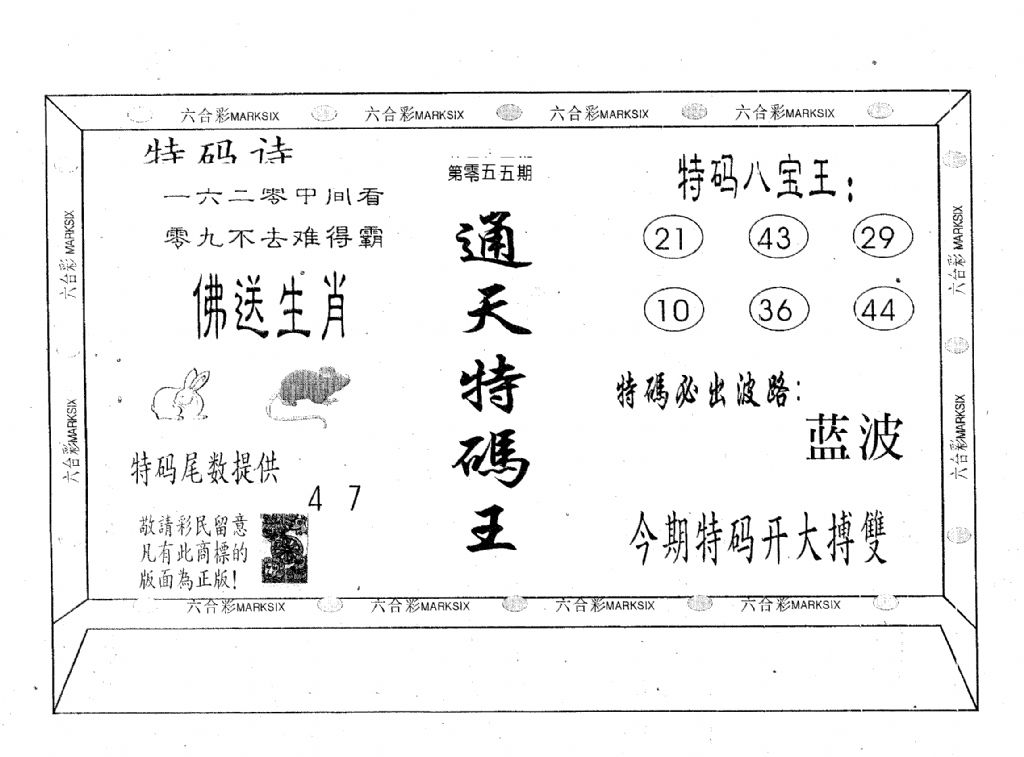 六合彩MARKSIX 六合彩MARKSIX 六合彩MARKSIX 六合彩MARKSIX
特码诗
一六二零中间看
零九不去难得霸
佛送生肖
特码尾数提供
4 7
敬請彩民留意
凡有此商標的
版面為正版!
第零五五期
通天特碼王
特码八宝王:
21 43 29
10 36 44
特碼必出波路:
蓝波
今期特码开大搏雙
六合彩MARKSIX
六合彩MARKSIX
六合彩MARKSIX
六合彩MARKSIX
六合彩MARKSIX 六合彩MARKSIX 六合彩MARKSIX 六合彩MARKSIX